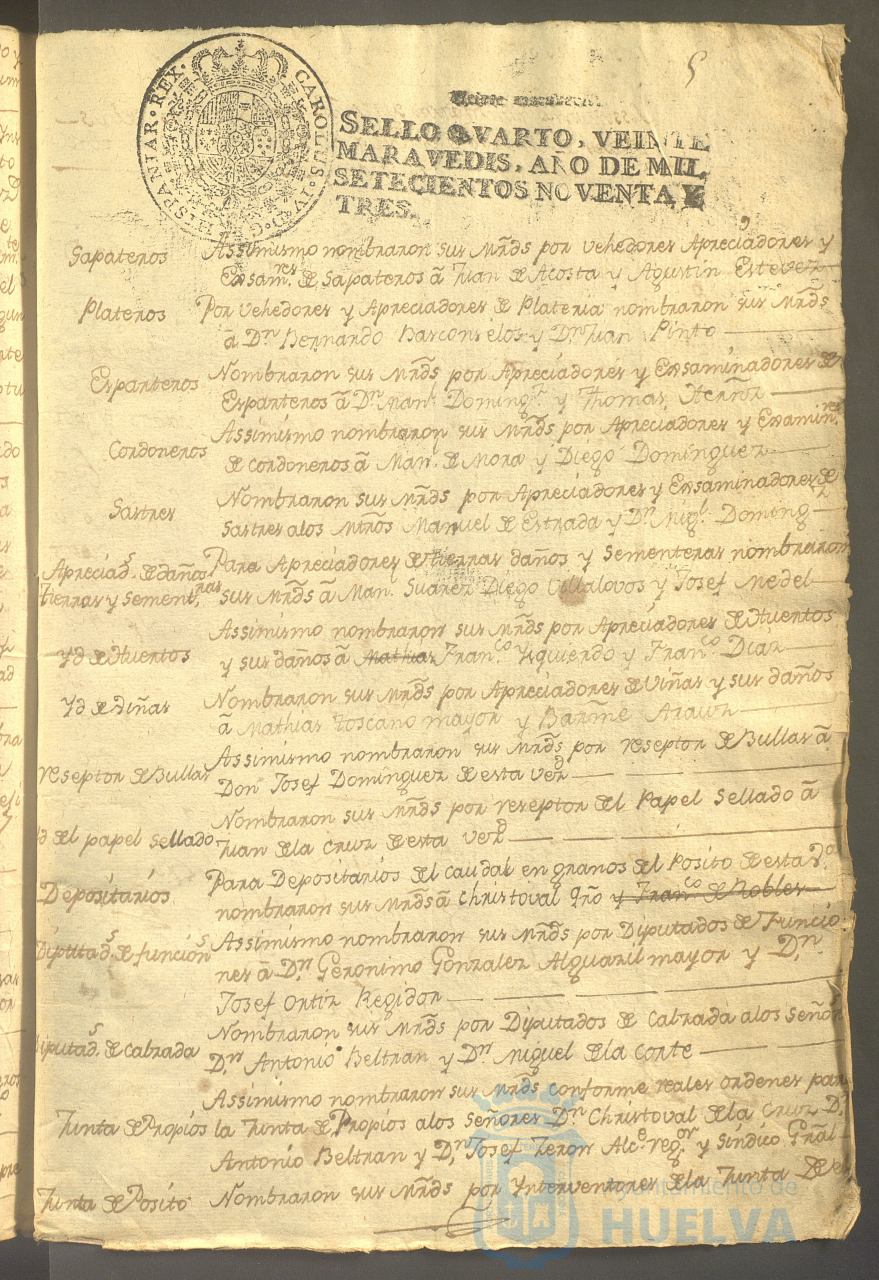 5
HISPANIAR. REX. CAROLUS. IV. D. G.
SELLO QVARTO, VEINTE
MARAVEDIS, AÑO DE MIL
SETECIENTOS NOVENTA Y
TRES.
Sapateros Assimismo nombraron sus Mrds por vehedores Apreciadores y
Exsam.res de Sapateros â Juan de Acosta y Agustin Estevez
Plateros Por vehedores y Apreciadores de Plateria nombraron sus Mrds
â Dn Bernardo Basconselos y Dn Juan Pinto
Esparteros Nombraron sus Mrds por Apreciadores y Exsaminadores de
Esparteros â Dn Man.l Doming.z y Thomas
Cordoneros Assimismo nombraron sus Mrds por Apreciadores y Examin.res
de cordoneros â Man.l de Mora y Diego Dominguez
Sastres Nombraron sus Mrds por Apreciadores y Exsaminadores de
Sastres alos Mtros Manuel de Estrada y Dn Mig.l Doming.z
Apreciad.s de daños Para Apreciadores de tierras daños y sementeras nombraron
tierras y sement.ras sus Mrds â Man.l Suarez Diego Villalovos y Josef Medel
Yd de Huertos Assimismo nombraron sus Mrds por Apreciadores de Huertos
y sus daños â Mathias Fran.co Yzquierdo y Fran.co Diaz
Yd de viñas Nombraron sus Mrds por Apreciadores de Viñas y sus daños
â Mathias Toscano mayor y Barme
reseptor de Bullas Assimismo nombraron sus Mrds por reseptor de Bullas â
Don Josef Dominguez de esta vezd
Yd del papel sellado Nombraron sus Mrds por reseptor del Papel Sellado â
Juan dela Cruz de esta vezd
Depositarios Para Depositarios del caudal en granos del Posito de esta V.a
nombraron sus Mrds â Christoval y Fran.co de Robles
Diputad.s de funcion.s Assimismo nombraron sus Mrds por Diputados de Funcio
nes â D.n Geronimo Gonzalez Alguazil mayor y D.n
Josef Ortiz Regidor
Diputad.s de Calzada Nombraron sus Mrds por Diputados de Calzada alos Señor.s
D.n Antonio Beltran y Dn Miguel dela Corte
Assimismo nombraron sus Mrds conforme reales ordenes para
Junta de Propios la Junta de Propios alos Señores D.n Christoval de la Cruz D.n
Antonio Beltran y D.n Josef Zeron Alc.e reg.or y Sindico Grãl
Junta de Posito Nombraron sus Mrds por Ynterventores dela Junta de
Ayuntamiento de
HUELVA